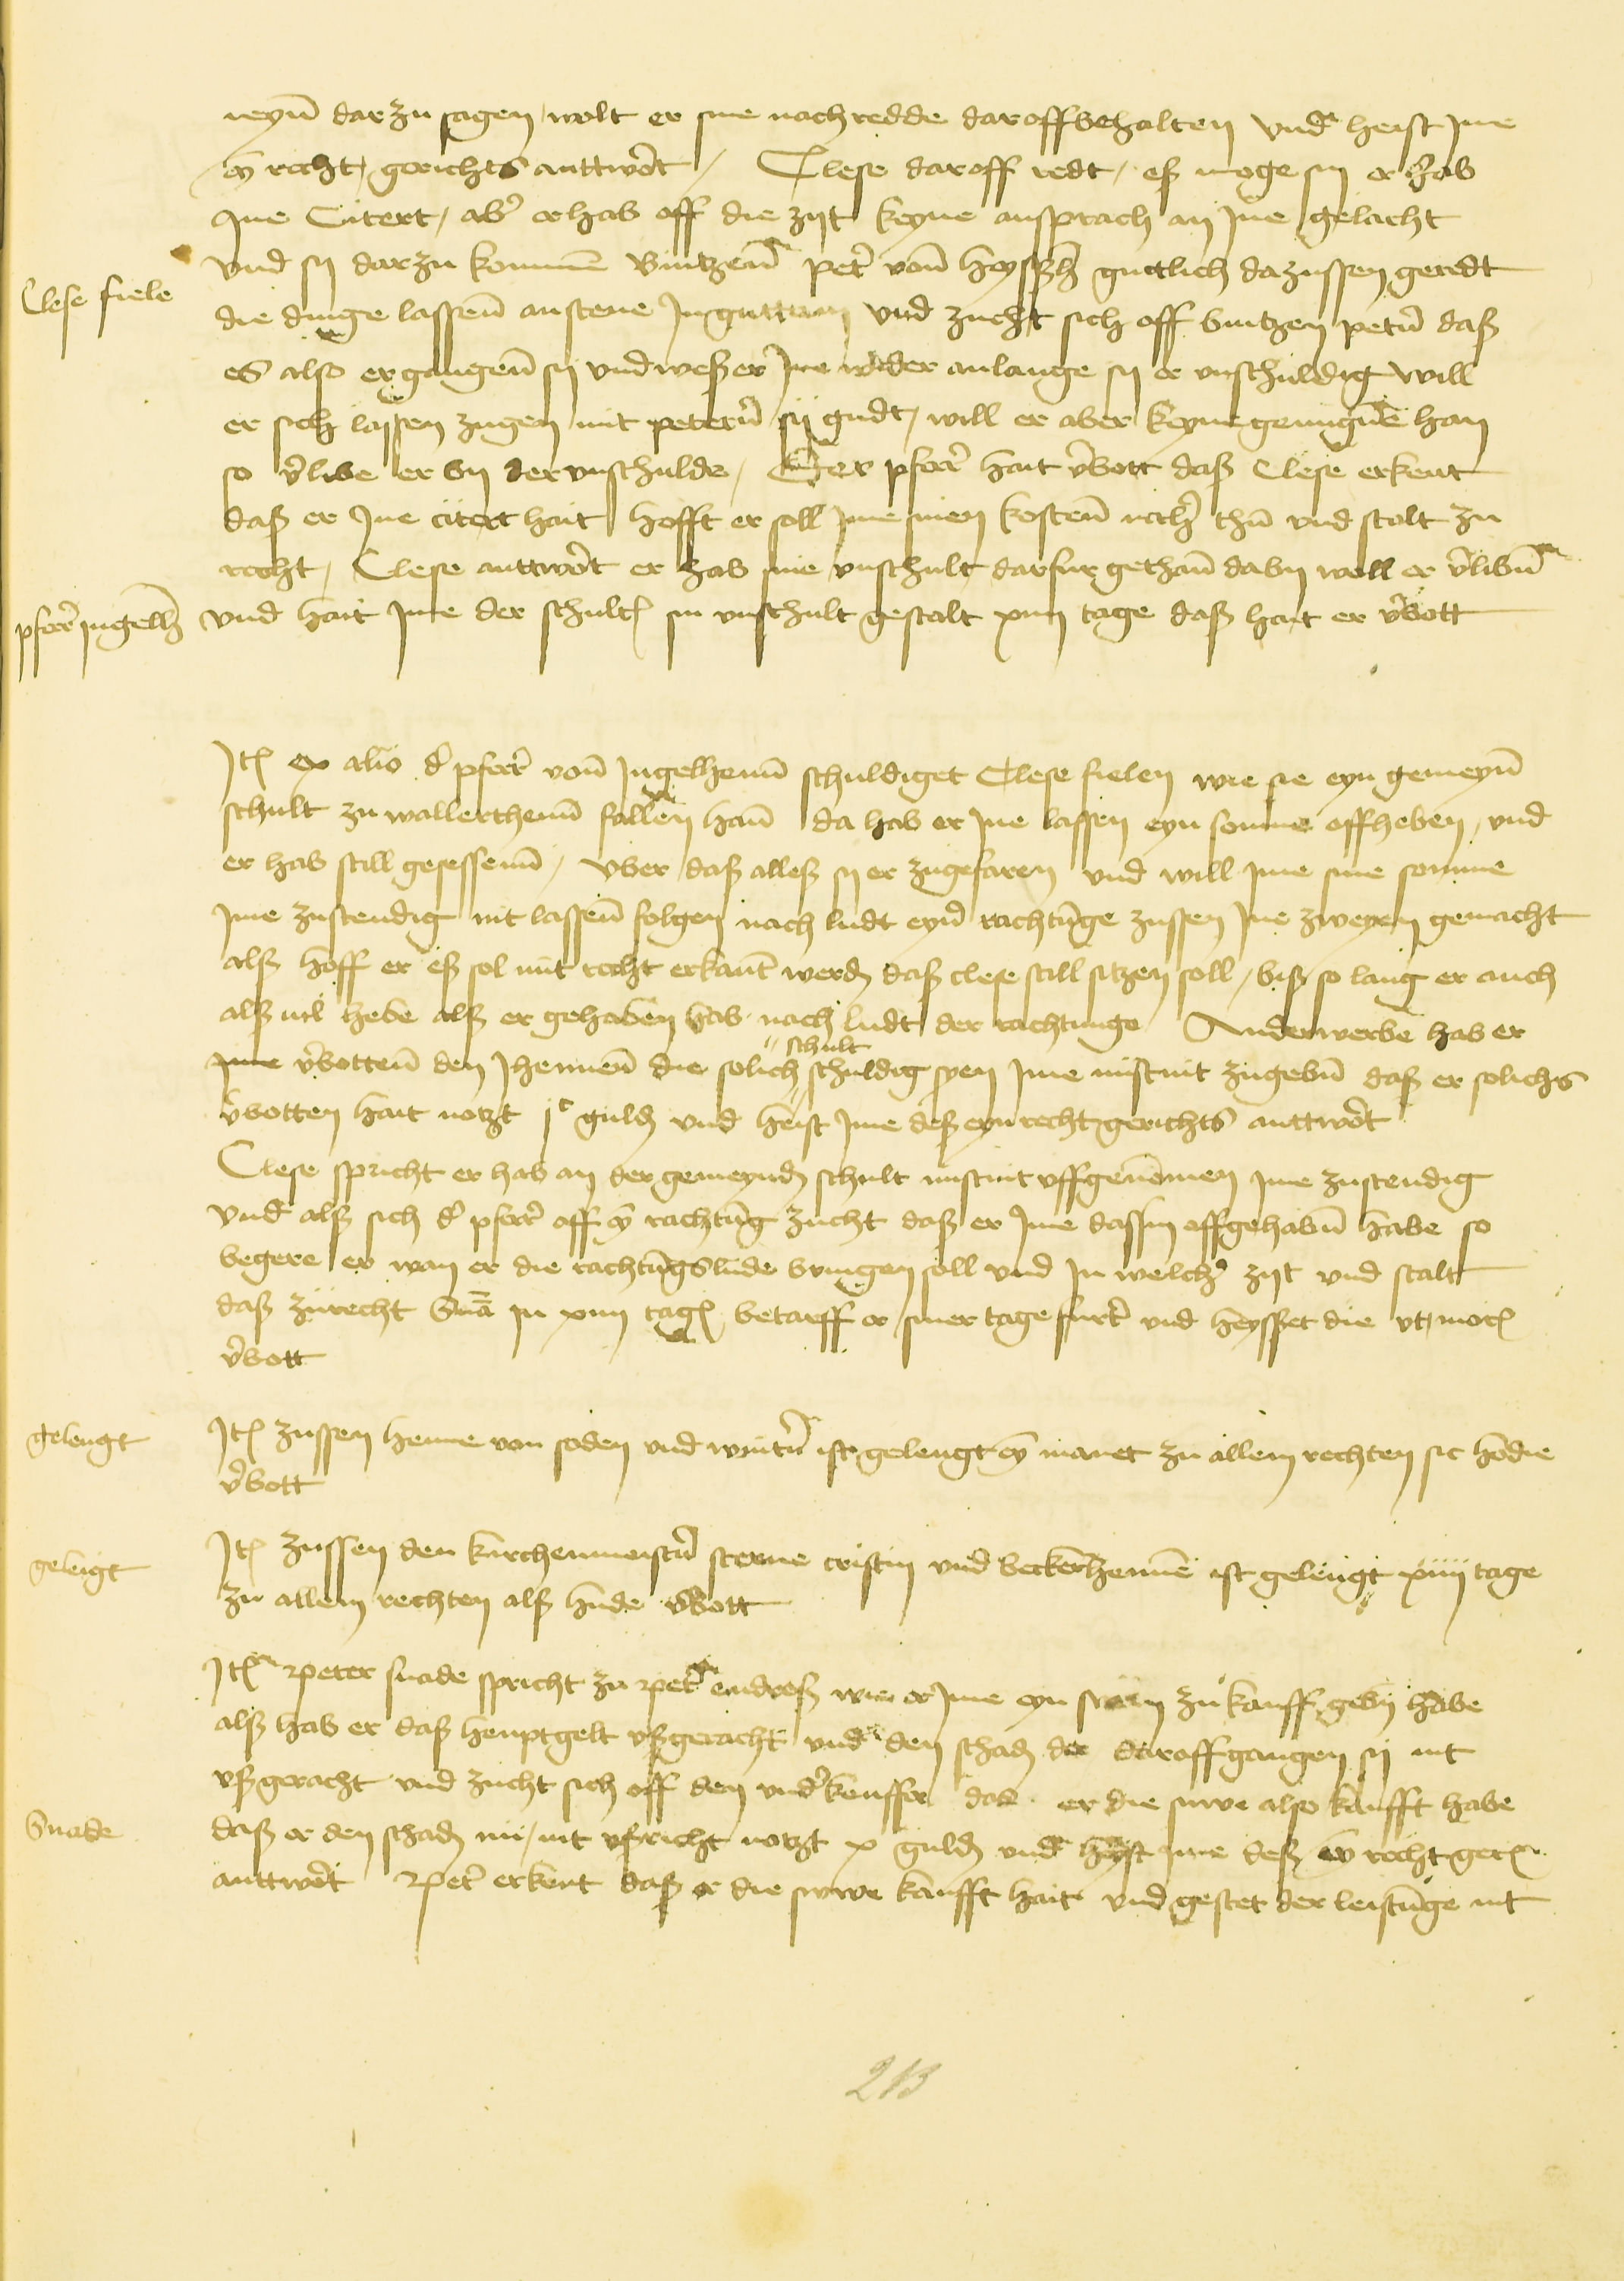 neyn dar zu sagen wolt er sine nach redde dar off behalten und heist Ine
ey recht gerichts anttwert Clese dar off redt eß moge sin er hab
Ine Citert aber er hab off die zijt keyne ansprach an Ine gelacht
und sij dar zu kommen peter von gutlich da zussen geredt
Clese fiele
die dinge lassen anstene und zucht sich off peter daß
es also ergangen sij und weß er Ine wider anlange sij er unschuldig will
er sich lassen zugen mit petern sij gudt will er aber keyn han
so verlibe er by der unschulde Der pferrer hait verbott daß Clese erkent
daß er Ine citert hait hofft er soll Ime sinen kosten thun und stalt zu
recht Clese anttwert er hab sine unschult darfur gethan daby woll er verliben
pferrer Ingelnh
und hait Ime der schultes sin unschult gestalt xiiij tage daß hait er verbott
Item ex alio der pferrer von Ingelheim schuldiget Clese fielen wie sie eyn gemeyn
schult zu wallertheim fallen han da hab er Ine lassen eyn somme offheben und
er hab still gesessenn uber daß alleß sij er zugefaren und will Ime sine somme
Ime zustendig nit lassen folgen nach ludt eyner rachtunge zussen Ine zweyen gemacht
alß hoff er eß sol mit recht erkant werden daß clese still sitzen soll biß so lang er auch
alß vil hebe alß er gehaben hab nach ludt der rachtunge Anderwerbe hab er
Ime verbotten den Jhennen die solich schult schuldig syen Ime nust nit zugeben daß er solichs
verbotten hait notzt jc gulden und heist Ime deß eyn recht gerichts anttwert
Clese spricht er hab an der gemeynden schult nust nit uffgenommen Ime zustendig
und alß sich der pferrer off ey rachtung zucht daß er Ime dassin offgehaben habe so
begere er wan er die rachtungslude bringen soll und In welcher zijt und stalt
daß zurecht In xiiij tagen betarff er siner tage furter und heysset die
verbott
gelengt
Item zussen henne von soden und wintern ist gelengt ey manet zu allem rechten sic hodie
verbott
gelengt
Item zussen den kirchenmeistern sterne cristin und beckerhenne ist gelengt xiiij tage
zu allem rechten alß hude verbott
Item peter snade spricht zu peter endreß wie er Ime eyn zu kauff geben habe
alß hab er daß heuptgelt ußgeracht und den schaden der dar off gangen sij nit
ußgeracht und zucht sich off den underkeuffer das er die suwe also kaufft habe
Snade
daß er den schaden nit ußricht notzt x gulden und heyst Ime deß ey recht gerichts
anttwert Peter erkent daß er die suwe kaufft hait und gestet der leistunge nit
213